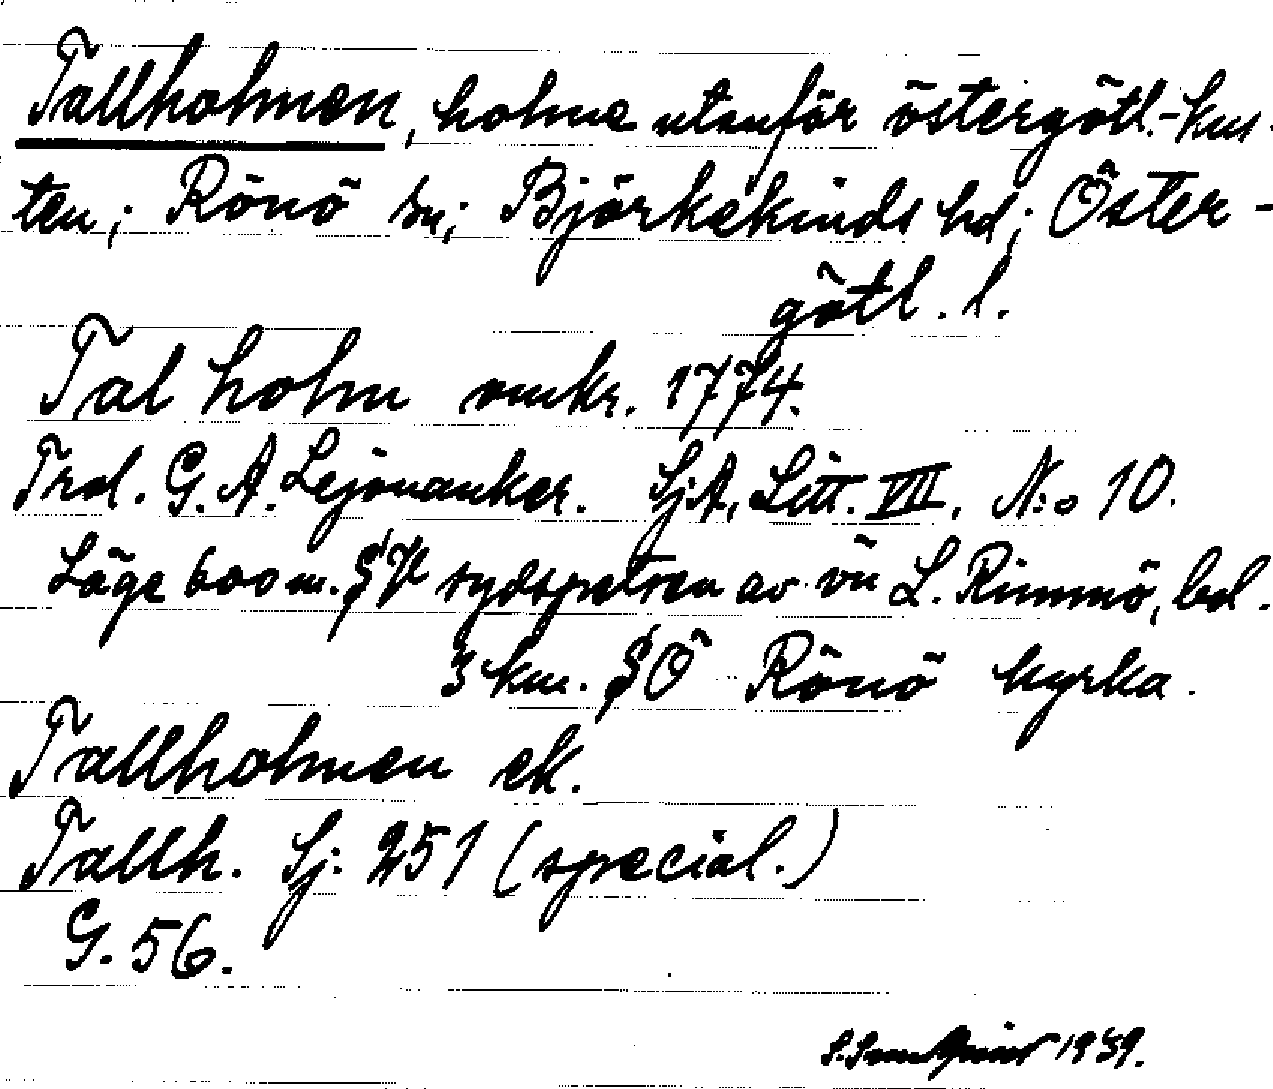 Tallholmen, holme utanför östergötl.-kus-
ten; Rönö sn; Björkekinds hd; Öster-
götl. l.
Tal holm omkr. 1774.
Trol. G. A. Lejonanker. SjA, Litt. VII, N:o 10.
Läge 600 m. SV sydspetsen av ön L. Rimmö, bel.
3 km. SÖ Rönö kyrka.
Tallholmen ek.
Tallh. Sj. 251 (special.)
G. 56.
1939.